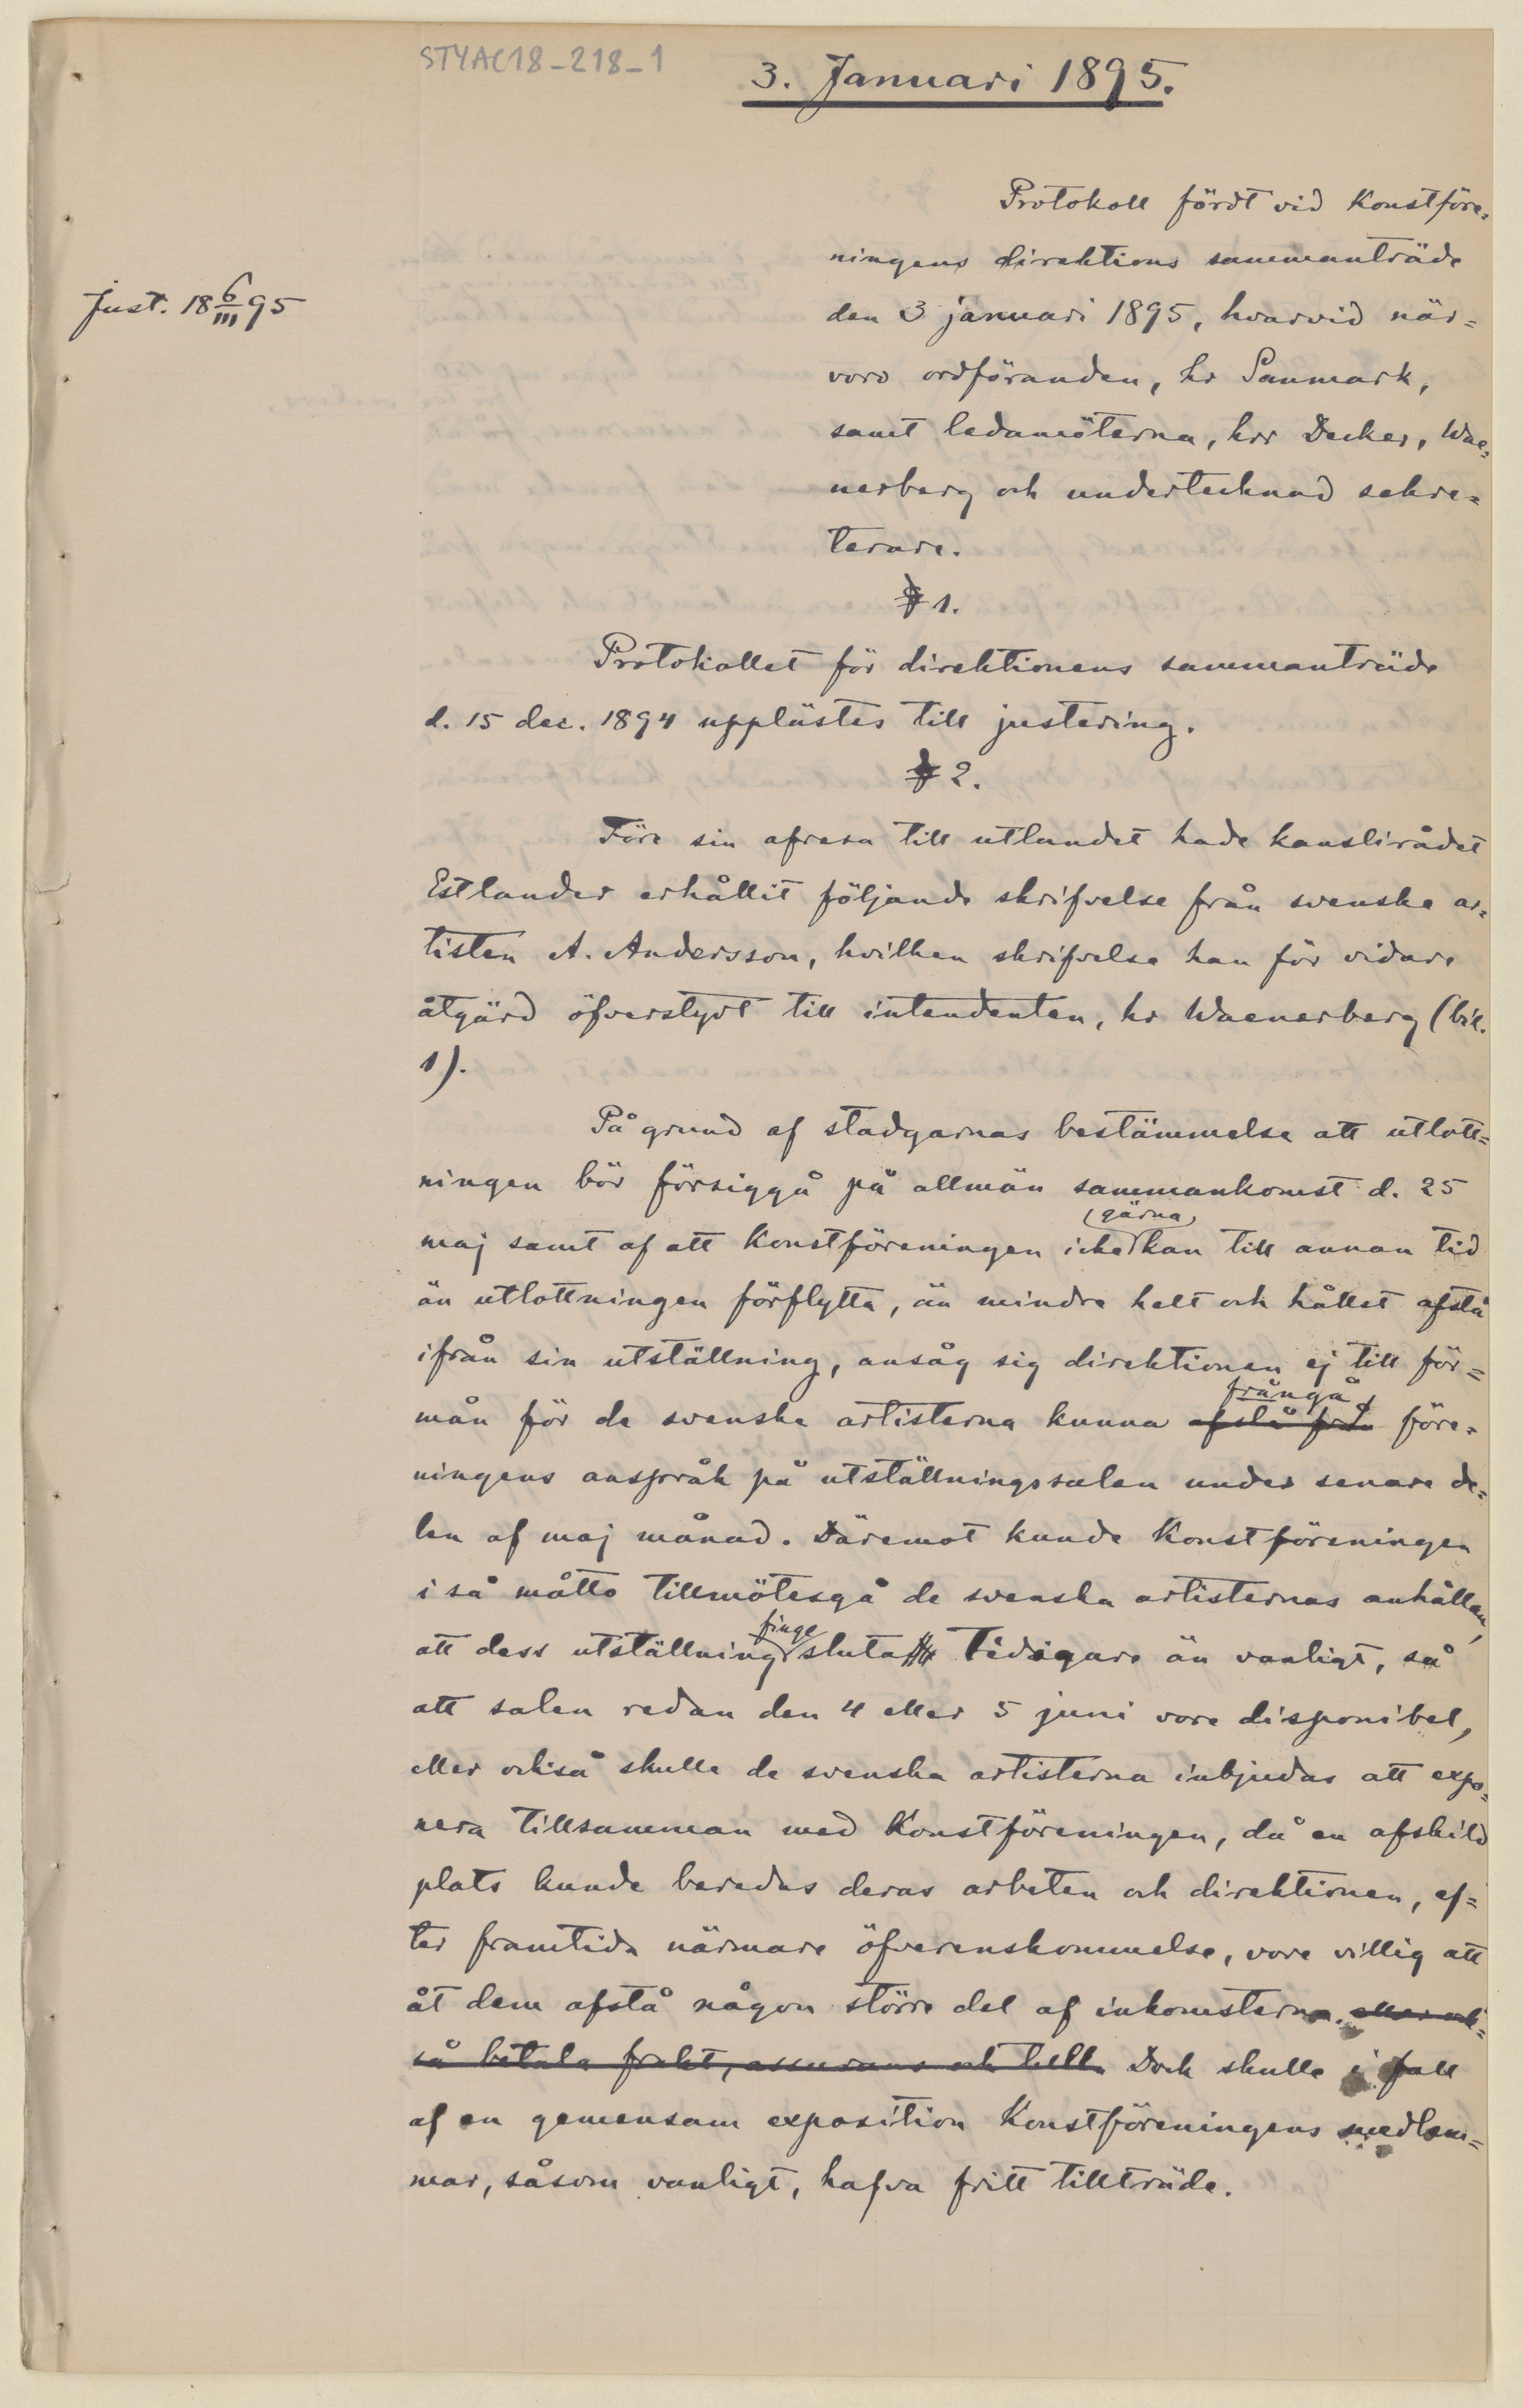 STYAC18-218-1
3. Januari 1895.
Just. 18 6/III 95
Protokoll fördt vid Konstföre=
ningens direktions sammanträde
den 3 januari 1895, hvarvid när=
voro ordföranden, hr Sanmark,
samt ledamöterna, hrr Decker, Wae=
nerberg och undertecknad sekre=
terare.
§ 1.
Protokollet för direktionens sammanträde
d. 15 dec. 1894 upplästes till justering.
§ 2.
Före sin afresa till utlandet hade kanslirådet
Estlander erhållit följande skrifvelse från svenske ar=
tisten A. Andersson, hvilken skrifvelse han för vidare
åtgärd öfverstyrt till intendenten, hr Waenerberg (bil.
1).
På grund af stadgarnas bestämmelse att utlott=
ningen bör försiggå på allmän sammankomst d. 25
(gärna)
maj samt af att Konstföreningen icke kan till annan tid
än utlottningen förflytta, än mindre helt och hållet afstå
ifrån sin utställning, ansåg sig direktionen ej till för=
frångå
mån för de svenska artisterna kunna afstå från före=
ningens anspråk på utställningssalen under senare de=
len af maj månad. Däremot kunde Konstföreningen
i så måtto tillmötesgå de svenska artisternas anhållan,
finge
att dess utställning sluta tidigare än vanligt, så
att salen redan den 4 eller 5 juni vore disponibel,
eller också skulle de svenska artisterna inbjudas att expo=
nera tillsamman med Konstföreningen, då en afskild
plats kunde beredas deras arbeten och direktionen, ef=
ter framtida närmare öfverenskommelse, vore villig att
åt dem afstå någon större del af inkomsterna. eller ock=
så betala frakt, assurans och tull. Dock skulle i fall
af en gemensam exposition Konstföreningens medlem=
mar, såsom vanligt, hafva fritt tillträde.